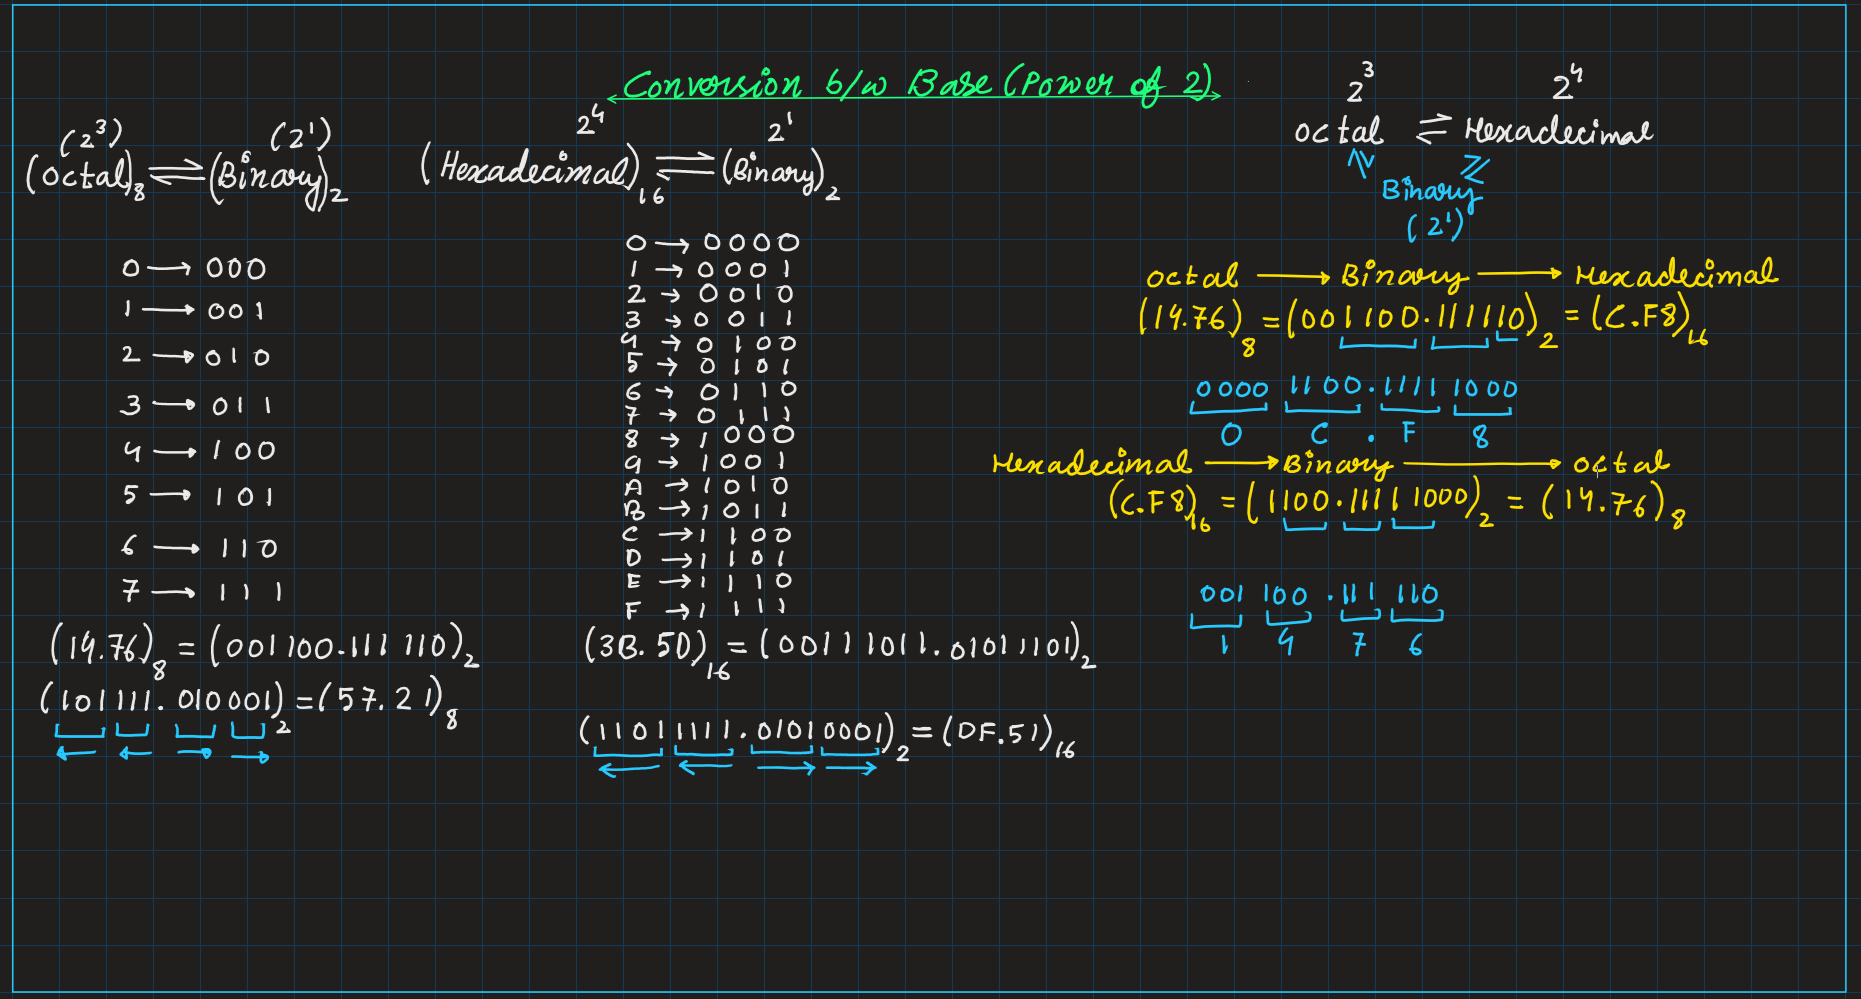 Conversion b/w Base (Power of 2)
(2³) (2¹)
(Octal)₈ ⇌ (Binary)₂
0 → 000
1 → 001
2 → 010
3 → 011
4 → 100
5 → 101
6 → 110
7 → 111
(14.76)₈ = (001100.111110)₂
(101111.010001)₂ = (57.21)₈
2⁴ 2¹
(Hexadecimal)₁₆ ⇌ (Binary)₂
0 → 0000
1 → 0001
2 → 0010
3 → 0011
4 → 0100
5 → 0101
6 → 0110
7 → 0111
8 → 1000
9 → 1001
A → 1010
B → 1011
C → 1100
D → 1101
E → 1110
F → 1111
(3B.5D)₁₆ = (00111011.01011101)₂
(11011111.01010001)₂ = (DF.51)₁₆
2³ 2⁴
Octal ⇌ Hexadecimal
Binary
(2¹)
Octal → Binary → Hexadecimal
(14.76)₈ = (001100.111110)₂ = (C.F8)₁₆
0000 1100.1111 1000
0 C . F 8
Hexadecimal → Binary → Octal
(C.F8)₁₆ = (1100.11111000)₂ = (14.76)₈
001 100 .111 110
1 4 7 6